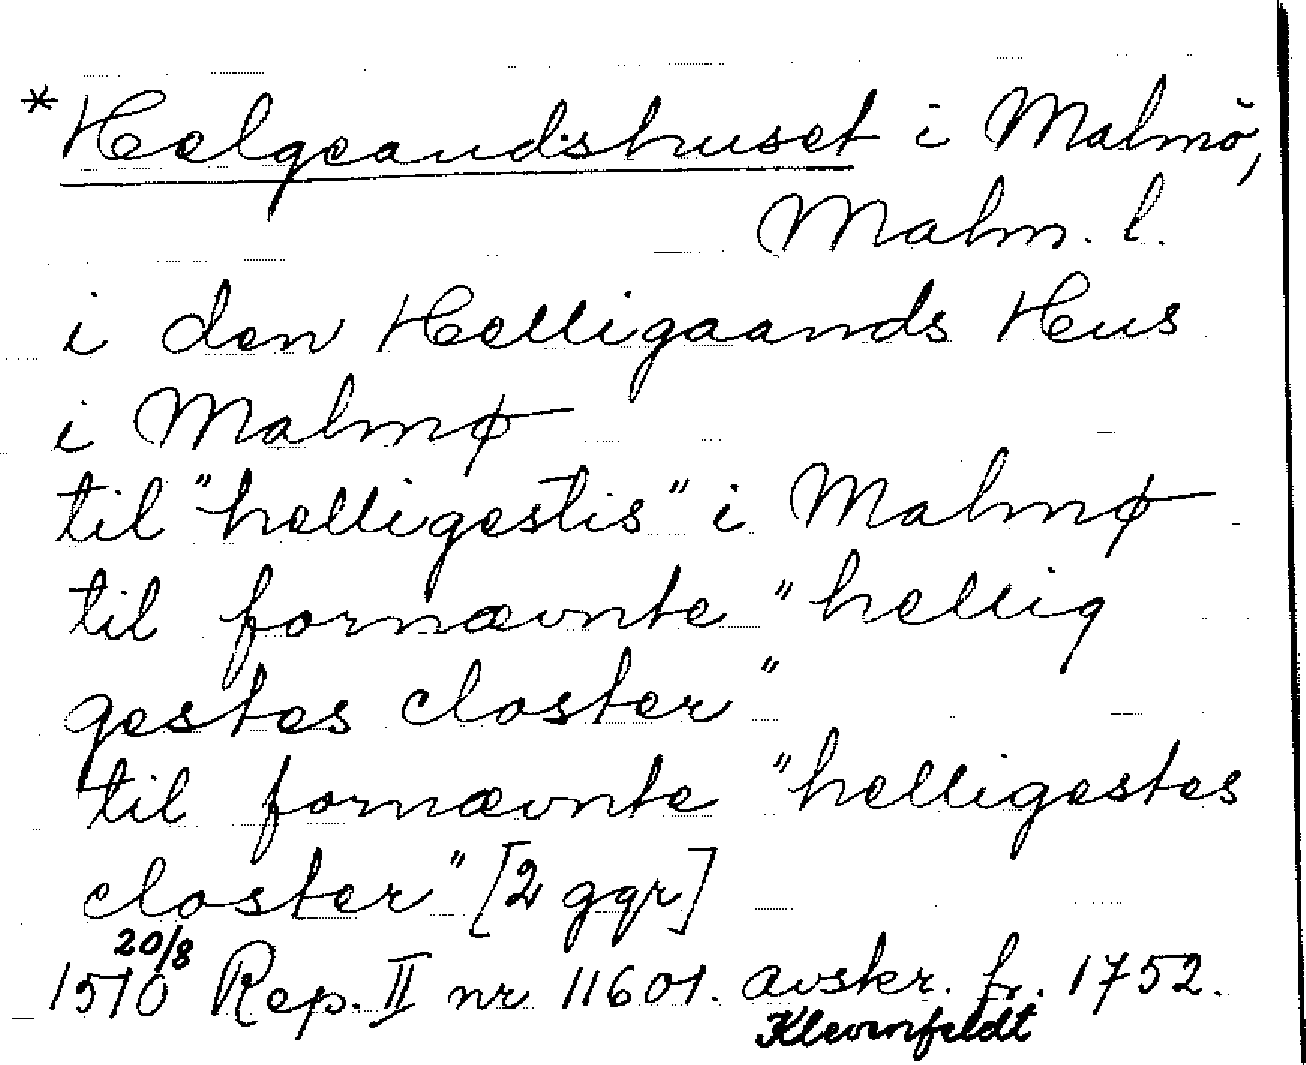 *Helgeandshuset i Malmö,
Malm. l.
i den Helligaands Hus
i Malmø
til "helligestis" i Malmø
til fornævnte "hellig
gestes closter"
til fornævnte "helligestes
closter" [2 ggr]
20/8
1510 Rep. II nr 11601. avskr. fr. 1752.
Klevenfeldt